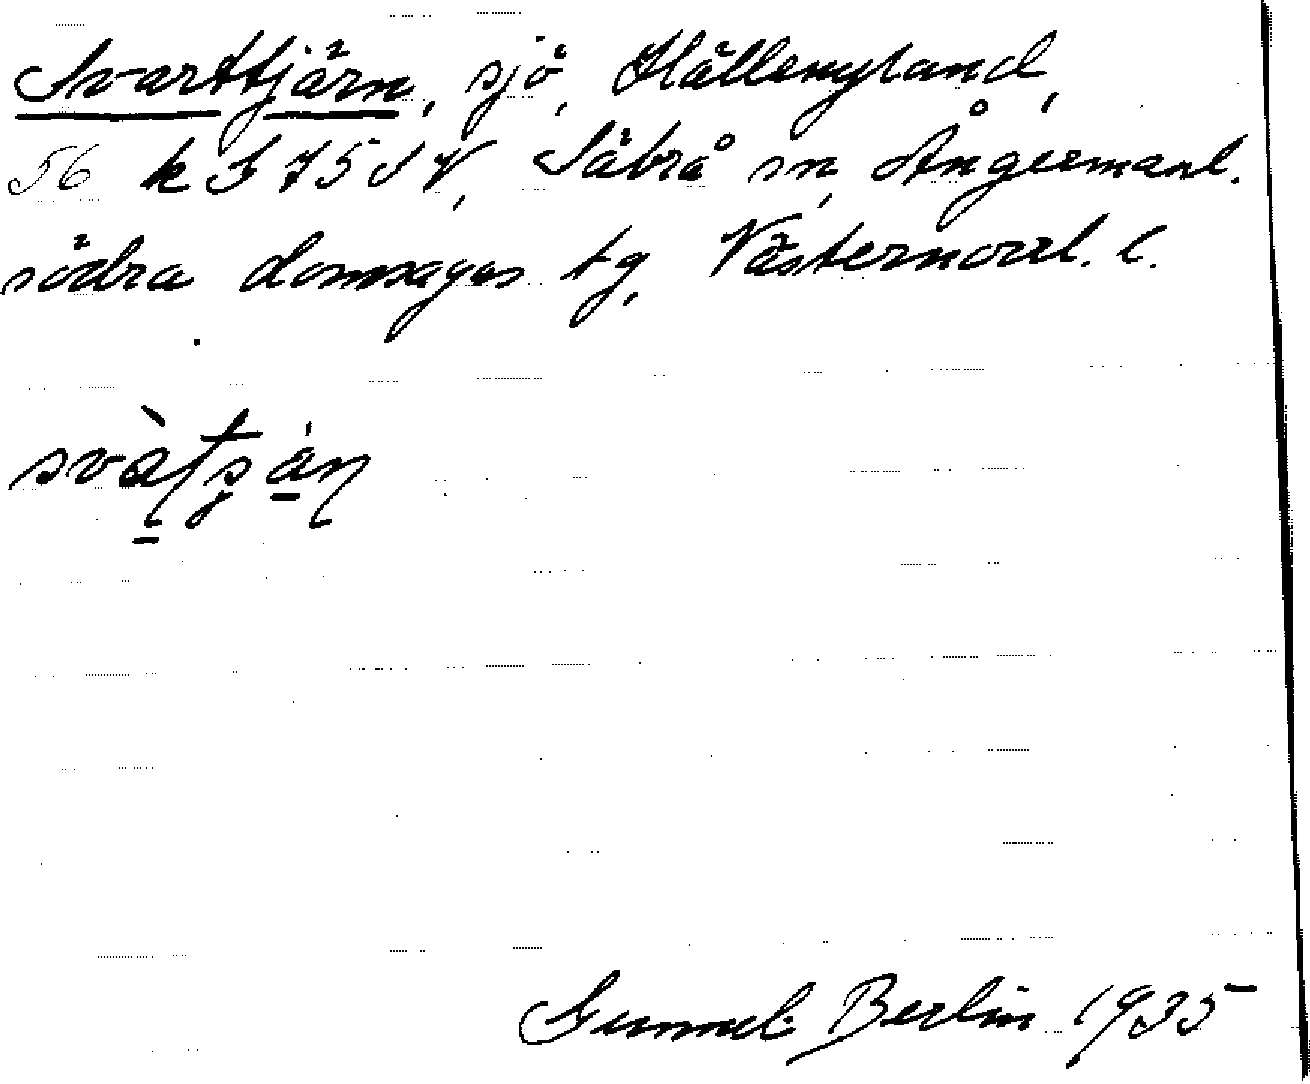 Svarttjärn, sjö, Hällenyland,
56 k I 75 SV, Säbrå sn, Ångermanl.
södra domsagas tg, Västernorrl. l.
svàʈʂán
Gunnel Berlin 1935